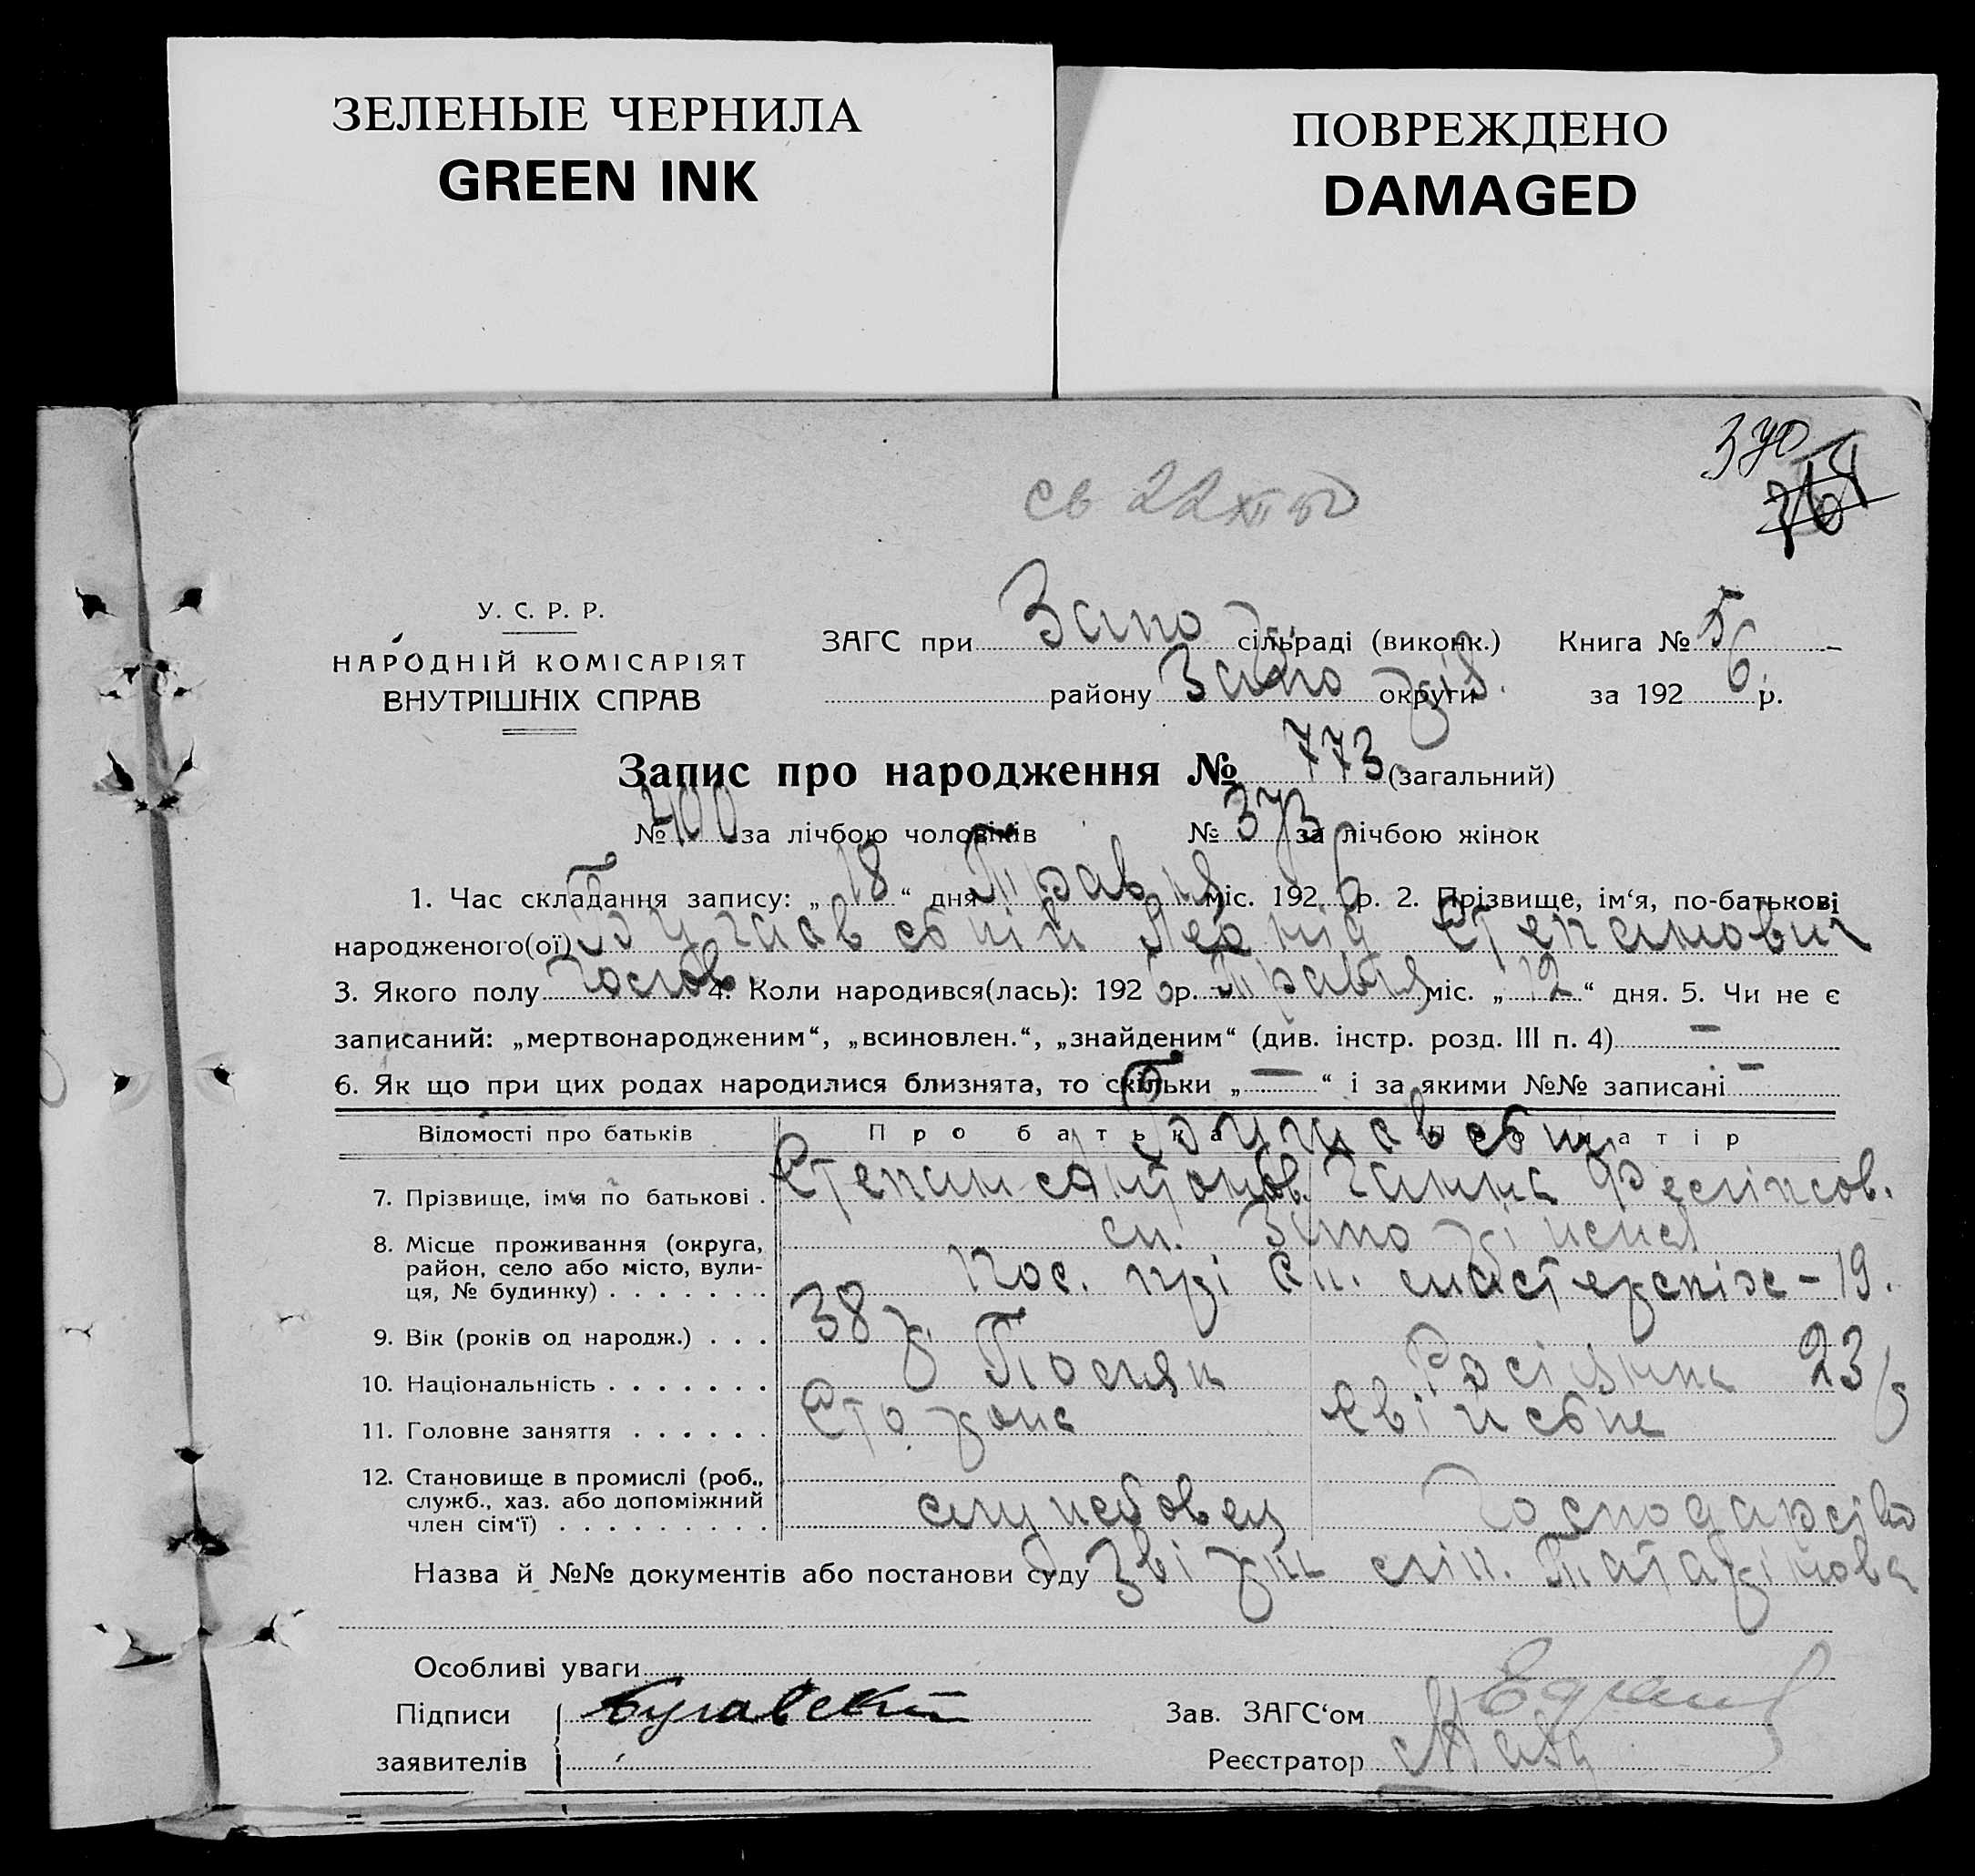 ЗЕЛЕНЫЕ ЧЕРНИЛА
GREEN INK
ПОВРЕЖДЕНО
DAMAGED
370
св 22 XII
У. С. Р. Р.
НАРОДНІЙ КОМІСАРІЯТ
ВНУТРІШНІХ СПРАВ
ЗАГС при Запоріз. сільраді (виконк.) Книга № 5
району Запоріз. округи за 1926 р.
Запис про народження № 773 (загальний)
№ 400 за лічбою чоловіків № 373 за лічбою жінок
1. Час складання запису: „18“ дня Травня міс. 1926 р. 2. Прізвище, ім‘я, по-батькові
народженого(ої) Леонід Степанович
3. Якого полу чолов. 4. Коли народився(лась): 1926 р. Травня міс. „12“ дня. 5. Чи не є
записаний: „мертвонародженим“, „всиновлен.“, „знайденим“ (див. інстр. розд. III п. 4) —
6. Як що при цих родах народилися близнята, то скільки „—“ і за якими №№ записані —
Відомості про батьків Про батька Про матір
7. Прізвище, ім‘я по батькові . Степан Антонов. Ганна
8. Місце проживання (округа, ст. Запоріжжя
район, село або місто, вули-
ця, № будинку) . . . . . . . пос. прі майстернях – 19.
9. Вік (років од народж.) . . . 38 р. 23 р
10. Національність . . . . . . . Поляк Росіянка
11. Головне заняття . . . . . . Сторож
12. Становище в промислі (роб.,
служб., хаз. або допоміжний
член сім‘ї) . . . . . . . . . службовец Господарство
Назва й №№ документів або постанови суду
Особливі уваги
Підписи Бугавский Зав. ЗАГС‘ом
заявителів Реєстратор